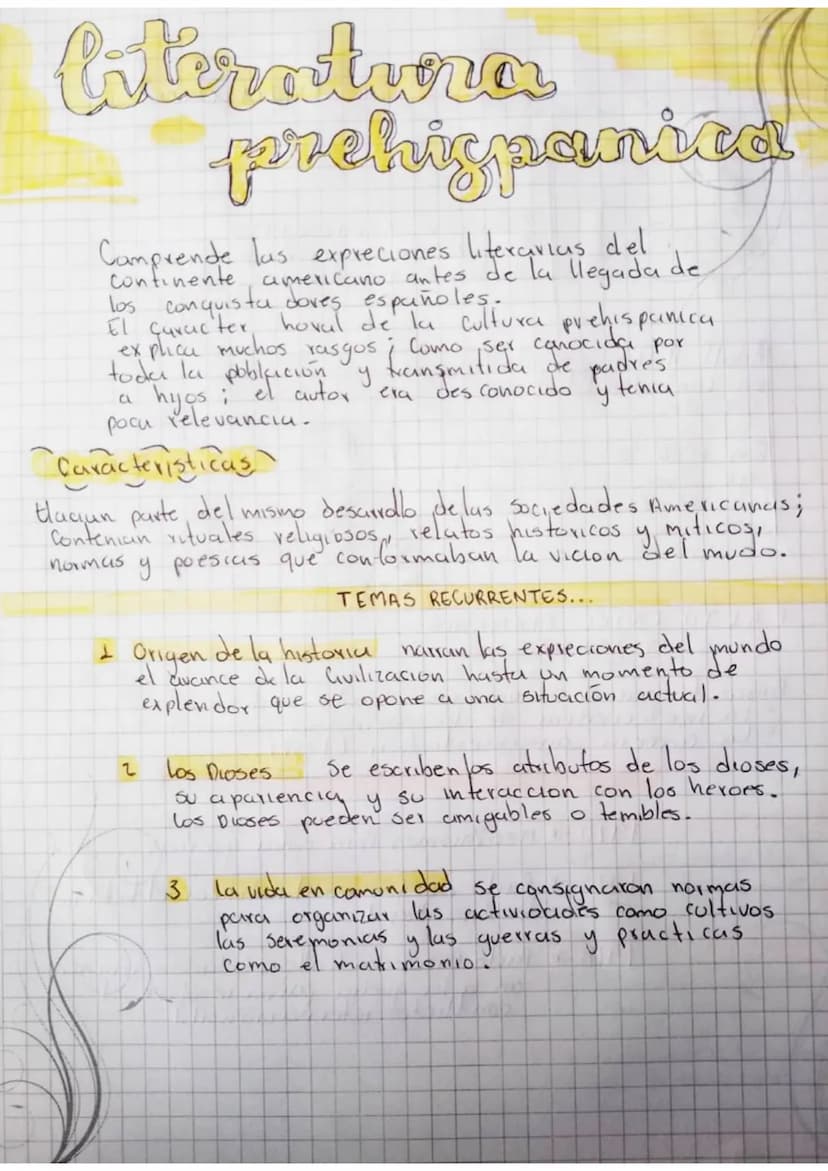 literatura
prehispanica
Comprende las expreciones literarias del
continente americano antes de la llegada de
los conquista dores españoles.
El caracter horal de la cultura prehispanica
explica muchos rasgos; como ser conocida por
toda la poblacion y transmitida de padres
a hijos; el autor era des conocido y tenia
poca relevancia.
Caracteristicas
Hacian parte del mismo desarrollo de las sociedades Americanas;
Contenian rituales religiosos, relatos historicos y miticos,
normas y poesias que conformaban la vicion del mudo.
TEMAS RECURRENTES...
1 Origen de la historia narran las expreciones del mundo
el avance de la Civilizacion hasta un momento de
explendor que se opone a una situación actual.
2 los Dioses Se escriben los atributos de los dioses,
su apariencia y su interaccion con los heroes.
Los Dioses pueden ser amigables o temibles.
3 la vida en comunidad se consignaron normas
para organizar las actividades como cultivos
las seremonias y las guerras y practicas
como el matrimonio.